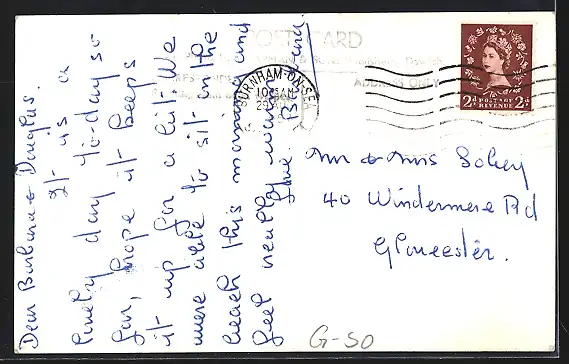 Dear Barbara & Douglas.
It is a
lovely day to-day so
far, hope it keeps
it up for a bit. We
were able to sit on the
beach this morning and
feel really warm
Love. B
POST CARD
ADDRESS ONLY
BURNHAM-ON-SEA
10:15AM
2D POSTAGE REVENUE 2D
Mr & Mrs
40 Windermere Rd
Gloucester.
G-SO